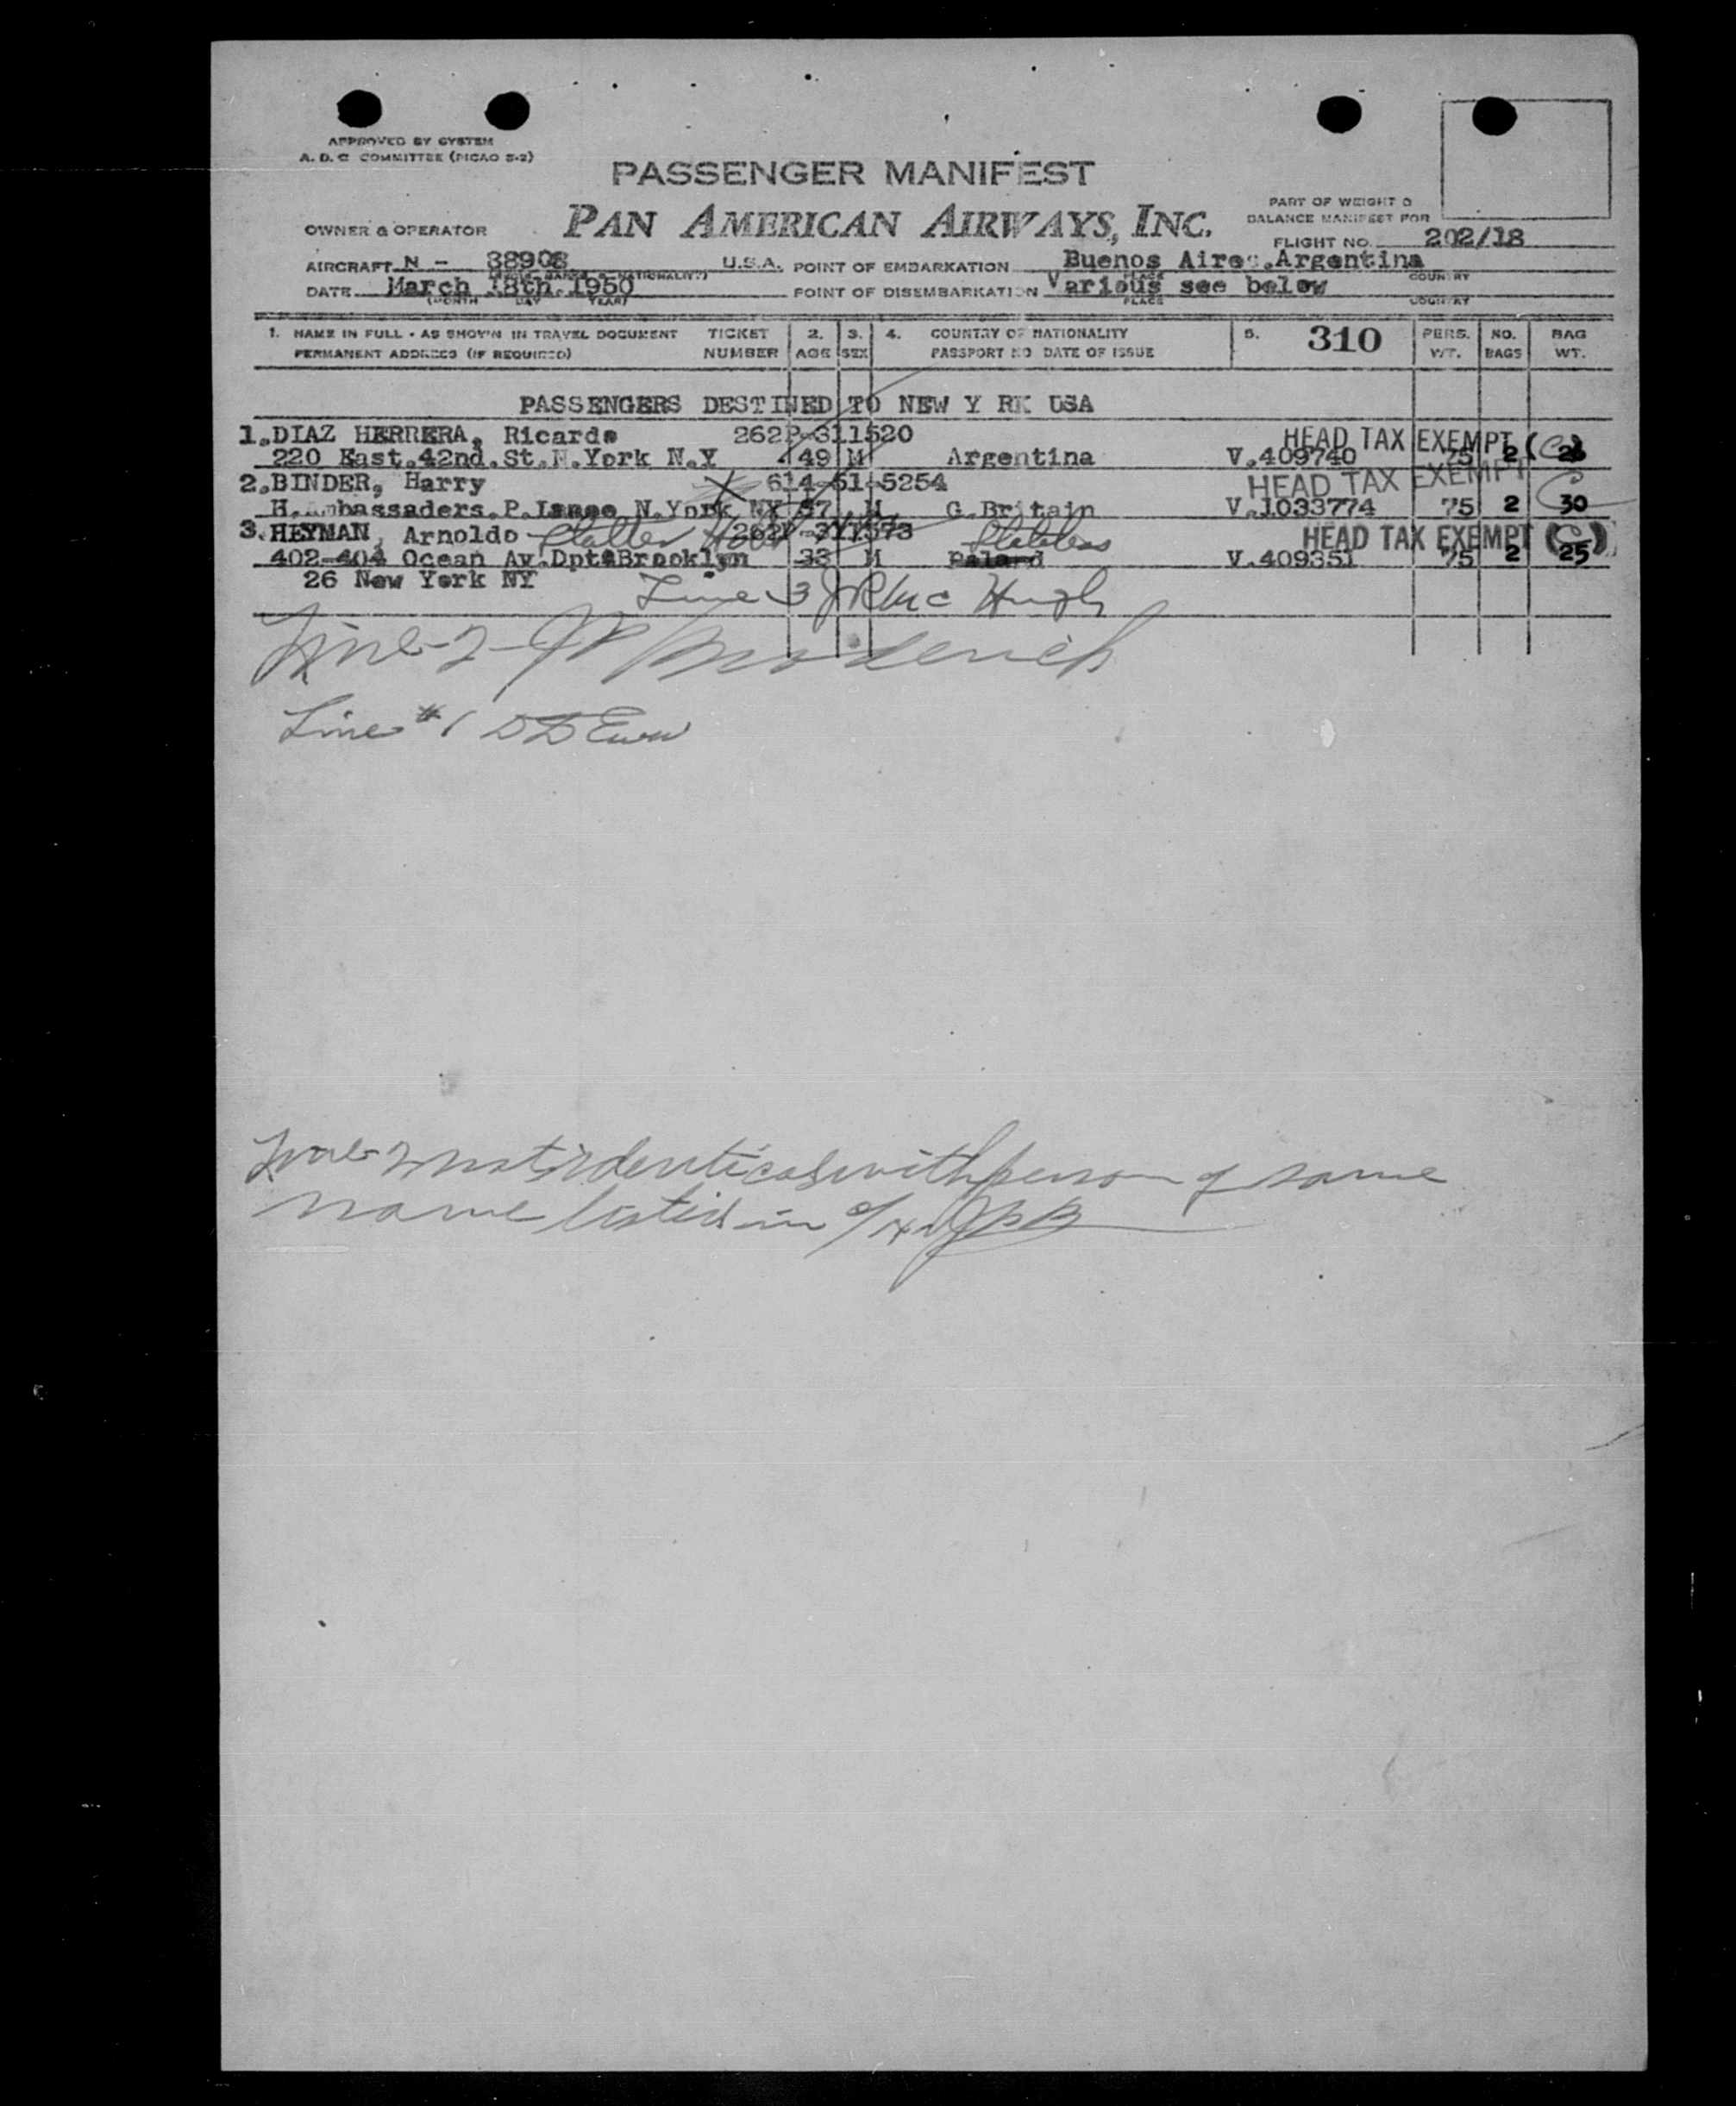 APPROVED BY SYSTEM
A. D. C COMMITTEE (PICAO S-2)
PASSENGER MANIFEST
PART OF WEIGHT &
BALANCE MANIFEST FOR
OWNER & OPERATOR PAN AMERICAN AIRWAYS, INC.
FLIGHT NO. 202/18
AIRCRAFT N - 38908 U.S.A. POINT OF EMBARKATION Buenos Aires.Argentina
PLACE COUNTRY
DATE March 18th.1950 POINT OF DISEMBARKATION Various see below
(MONTH DAY YEAR) PLACE COUNTRY
1. NAME IN FULL - AS SHOWN IN TRAVEL DOCUMENT TICKET 2. 3. 4. COUNTRY OF NATIONALITY 5. 310 PERS. NO. BAG
PERMANENT ADDRESS (IF REQUIRED) NUMBER AGE SEX PASSPORT NO DATE OF ISSUE WT. BAGS WT.
PASSENGERS DESTINED TO NEW Y RK USA
1.DIAZ HERRERA, Ricardo 262P-311520 HEAD TAX EXEMPT (C)
220 East.42nd.St.N.York N.Y 49 M Argentina V.409740 75 2
2.BINDER, Harry X 614-51-5254 HEAD TAX EXEMPT C
H.Ambassaders.P. N.York NY 57 M G.Britain V.1033774 75 2 30
3.HEYMAN, Arnoldo Statler Hotel 262P-311573 Stateless HEAD TAX EXEMPT (C)
402-404 Ocean Av.Dpt Brooklyn 33 M Poland V.409351 75 2 25
26 New York NY Line 3 JR Mc Hugh
Line-2-JP Broderick
Line #1 DD
Line 2 not identical with person of same
name listed in JPB